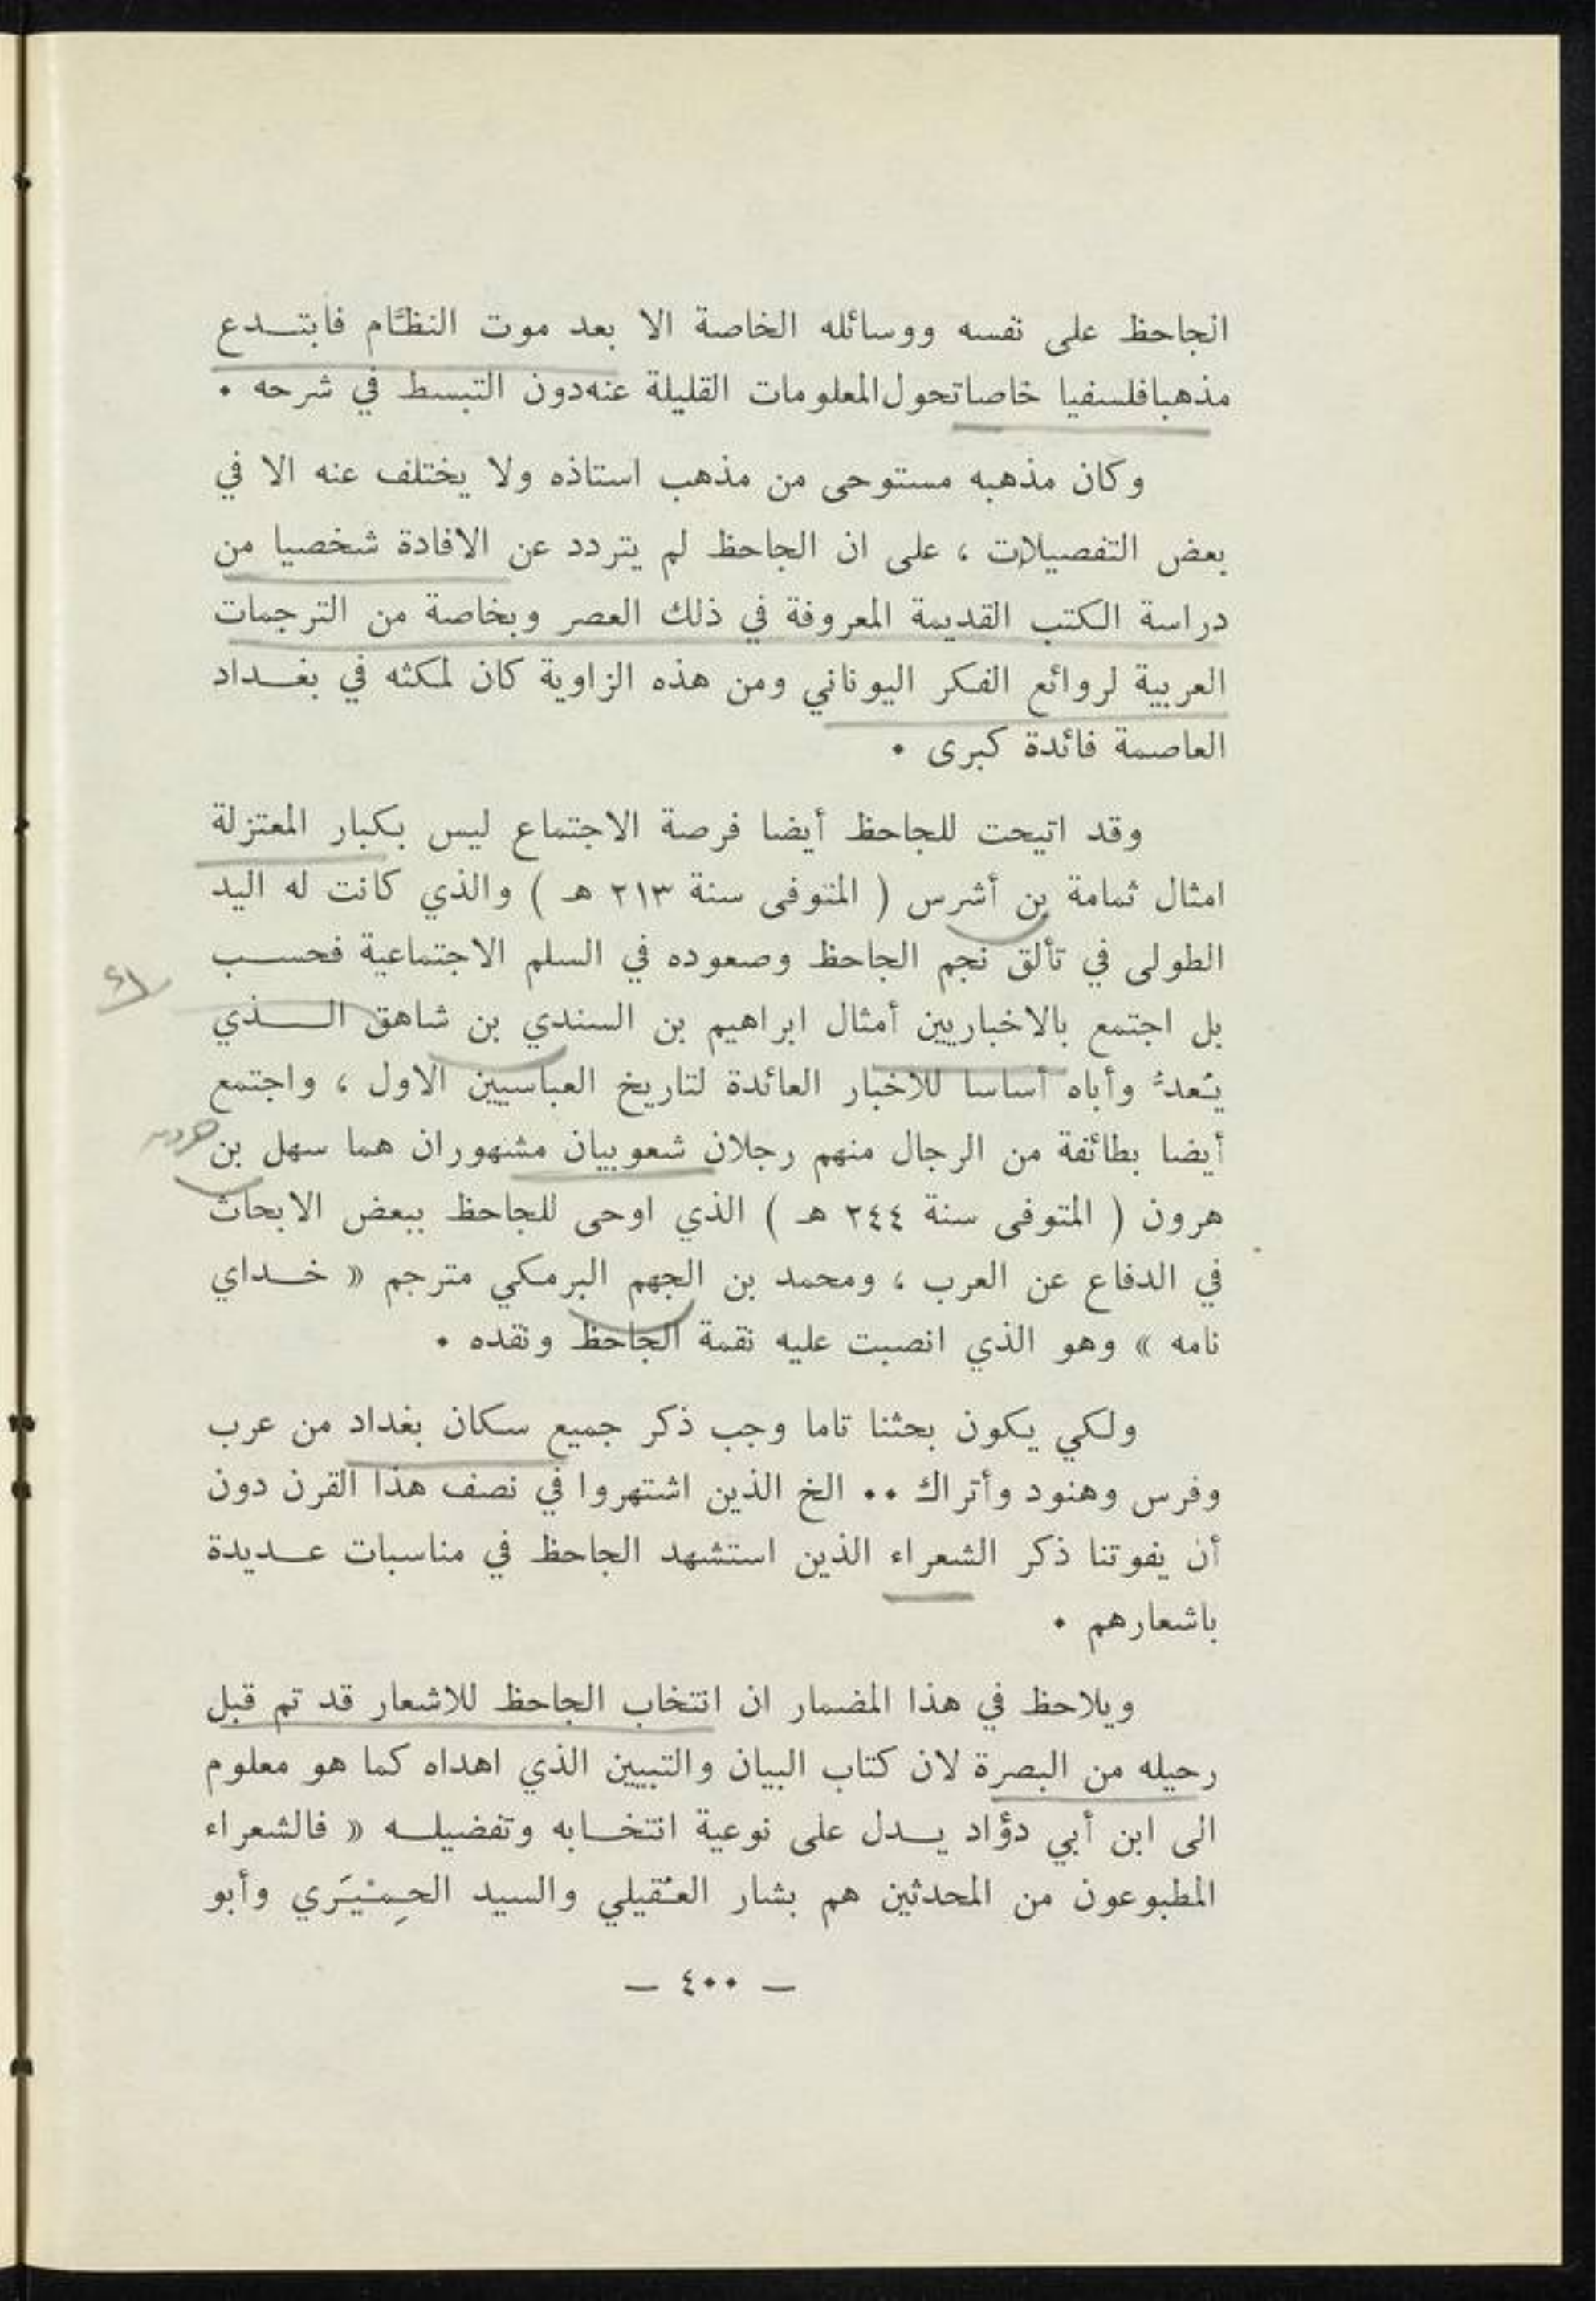 الجاحظ على نفسه ووسائله الخاصة الا بعد موت النظّام فابتـدع
مذهبافلسفيا خاصاتحول المعلومات القليلة عنه دون التبسط في شرحه .
وكان مذهبه مستوحى من مذهب استاذه ولا يختلف عنه الا في
بعض التفصيلات ، على ان الجاحظ لم يتردد عن الافادة شخصيا من
دراسة الكتب القديمة المعروفة في ذلك العصر وبخاصة من الترجمات
العربية لروائع الفكر اليوناني ومن هذه الزاوية كان لمكثه في بغـداد
العاصمة فائدة كبرى .
وقد اتيحت للجاحظ أيضا فرصة الاجتماع ليس بكبار المعتزلة
امثال ثمامة بن أشرس ( المتوفى سنة ٢١٣ هـ ) والذي كانت له اليد
الطولى في تألق نجم الجاحظ وصعوده في السلم الاجتماعية فحسـب
بل اجتمع بالاخباريين أمثال ابراهيم بن السندي بن شاهق الـذي
يُعدّ وأباه أساسا للاخبار العائدة لتاريخ العباسيين الاول ، واجتمع
أيضا بطائفة من الرجال منهم رجلان شعوبيان مشهوران هما سهل بن
هرون
هرون ( المتوفى سنة ٢٤٤ هـ ) الذي اوحى للجاحظ ببعض الابحاث
في الدفاع عن العرب ، ومحمد بن الجهم البرمكي مترجم « خـداي
نامه » وهو الذي انصبت عليه نقمة الجاحظ ونقده .
ولكي يكون بحثنا تاما وجب ذكر جميع سكان بغداد من عرب
وفرس وهنود وأتراك .. الخ الذين اشتهروا في نصف هذا القرن دون
أن يفوتنا ذكر الشعراء الذين استشهد الجاحظ في مناسبات عـديدة
باشعارهم .
ويلاحظ في هذا المضمار ان انتخاب الجاحظ للاشعار قد تم قبل
رحيله من البصرة لان كتاب البيان والتبيين الذي اهداه كما هو معلوم
الى ابن أبي دؤاد يـدل على نوعية انتخـابه وتفضيلـه « فالشعراء
المطبوعون من المحدثين هم بشار العُقيلي والسيد الحِمْيَري وأبو
— ٤٠٠ —